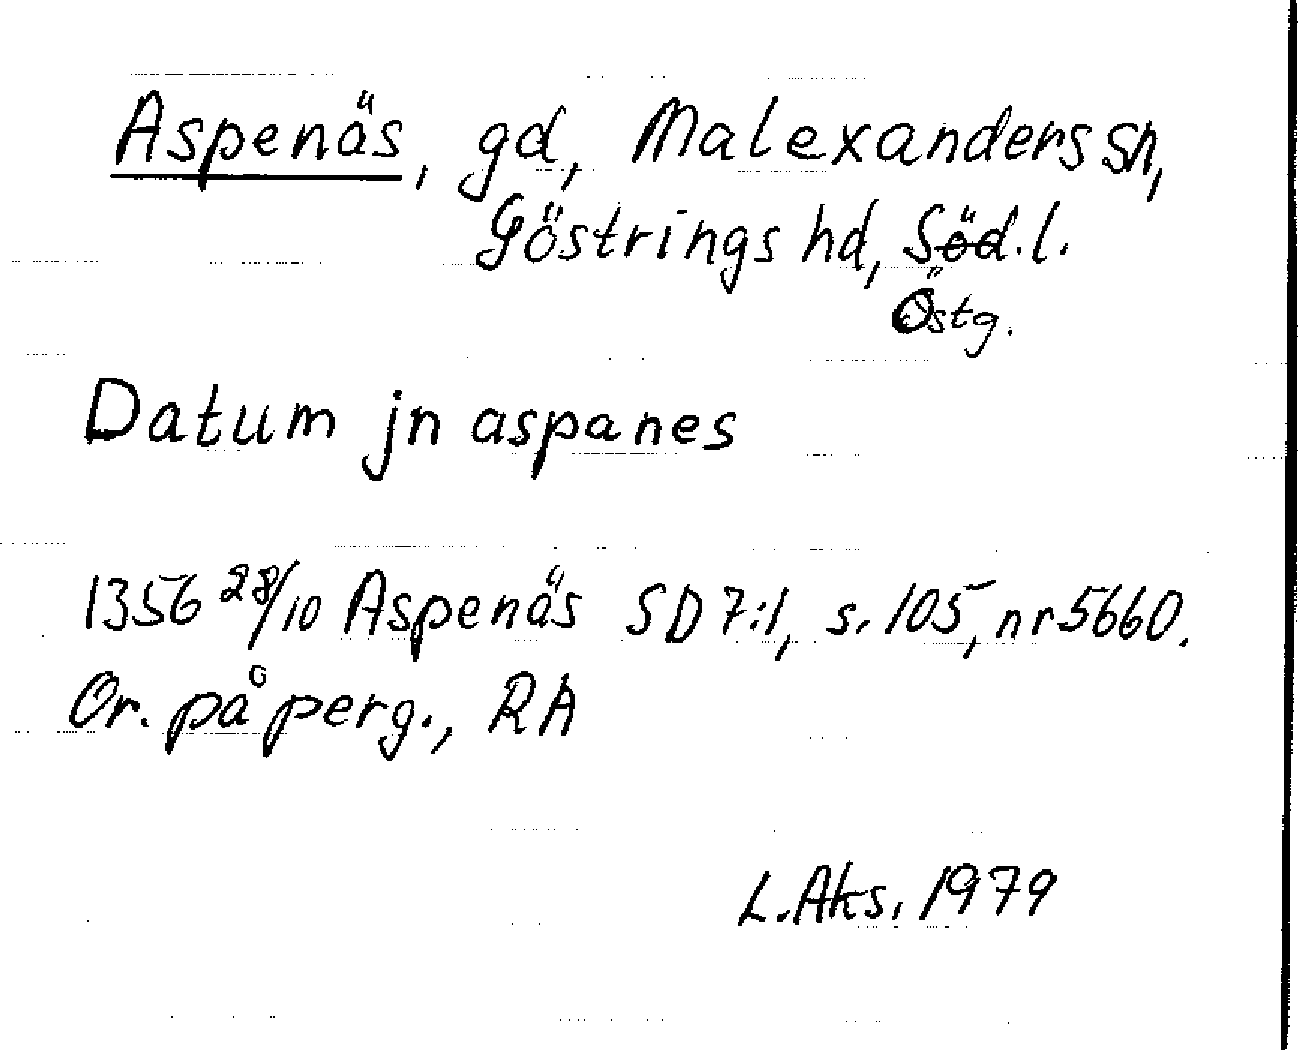 Aspenäs, gd, Malexanders sn,
Göstrings hd, Söd. l.
Östg.
Datum jn aspanes
1356 28/10 Aspenäs SD 7:1, s. 105, nr 5660.
Or. på perg., RA
L. Aks. 1979